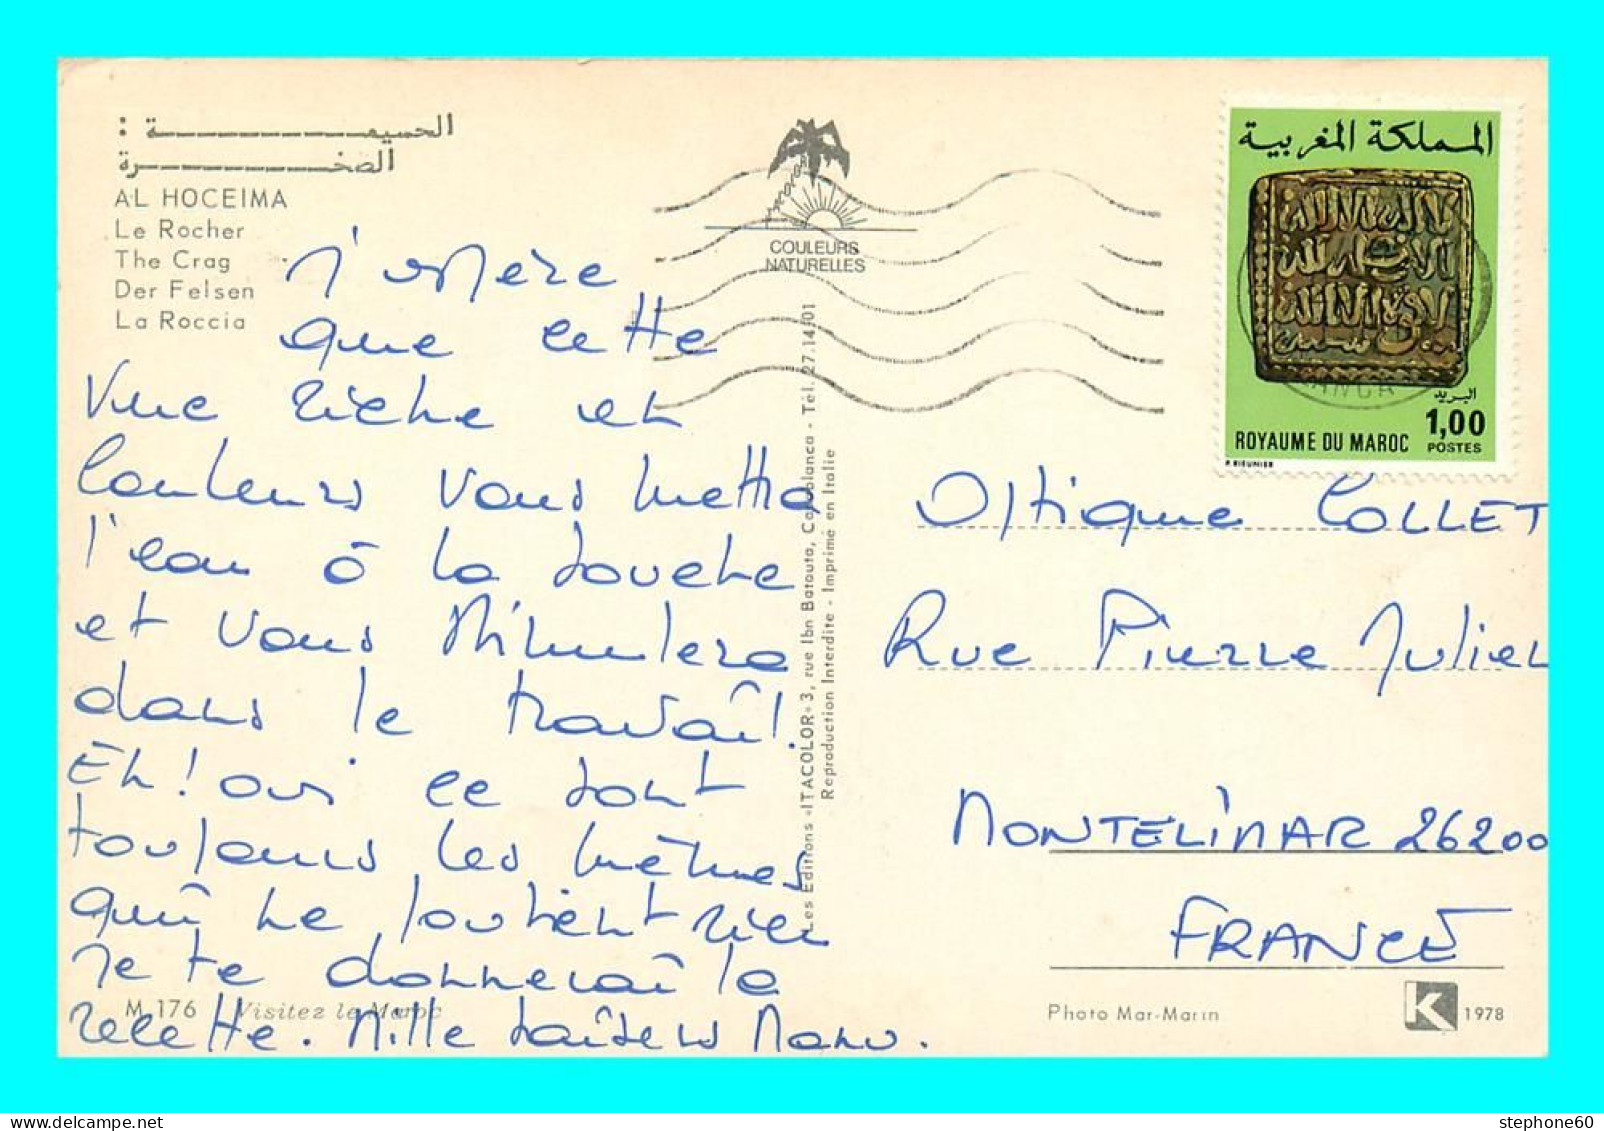 الحسيمة :
الصخرة
AL HOCEIMA
Le Rocher
The Crag
Der Felsen
La Roccia
COULEURS
NATURELLES
J'espère
que cette
vue riche et
couleurs vous mettra
l'eau à la bouche
et vous stimulera
dans le travail.
Eh! oui ce sont
toujours les mêmes
qui ne foutent rien
Je te donnerai la
recette. Mille baisers Manu.
M 176 Visitez le Maroc
Les Editions «ITACOLOR» 3, rue Ibn Batouta, Casablanca - Tél. 27.14.01
Reproduction Interdite - Imprimé en Italie
المملكة المغربية
البريد
1,00
ROYAUME DU MAROC POSTES
P. BIEUNIER
ANCA
Optique COLLET
Rue Pierre Julien
MONTELIMAR 26200
FRANCE
Photo Mar-Marin
K 1978
stephone60